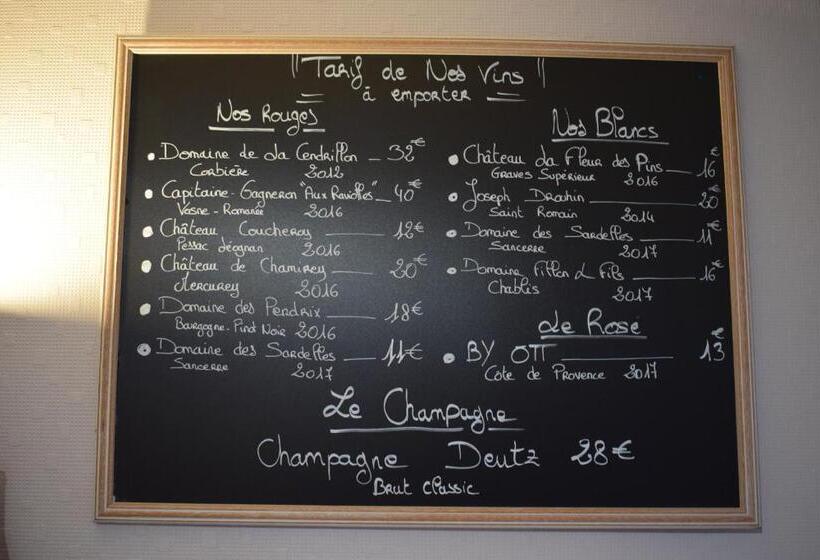 "Tarif de Nos Vins"
à emporter
Nos Rouges
Domaine de la Cendrillon 32€
Corbière 2012
Capitaine-Gagneron "Aux Raviolles" 40€
Vosne-Romanée 2016
Château Coucheroy 12€
Pessac Léognan 2016
Château de Chamirey 20€
Mercurey 2016
Domaine des Pendrix 18€
Bourgogne-Pinot Noir 2016
Domaine des Sardelles 11€
Sancerre 2017
Nos Blancs
Château La Fleur des Pins 16€
Graves Supérieur 2016
Joseph Drouhin 20€
Saint Romain 2014
Domaine des Sardelles 11€
Sancerre 2017
Domaine Fillon & Fils 16€
Chablis 2017
Le Rosé
BY OTT 13€
Côte de Provence 2017
Le Champagne
Champagne Deutz 28€
Brut Classic